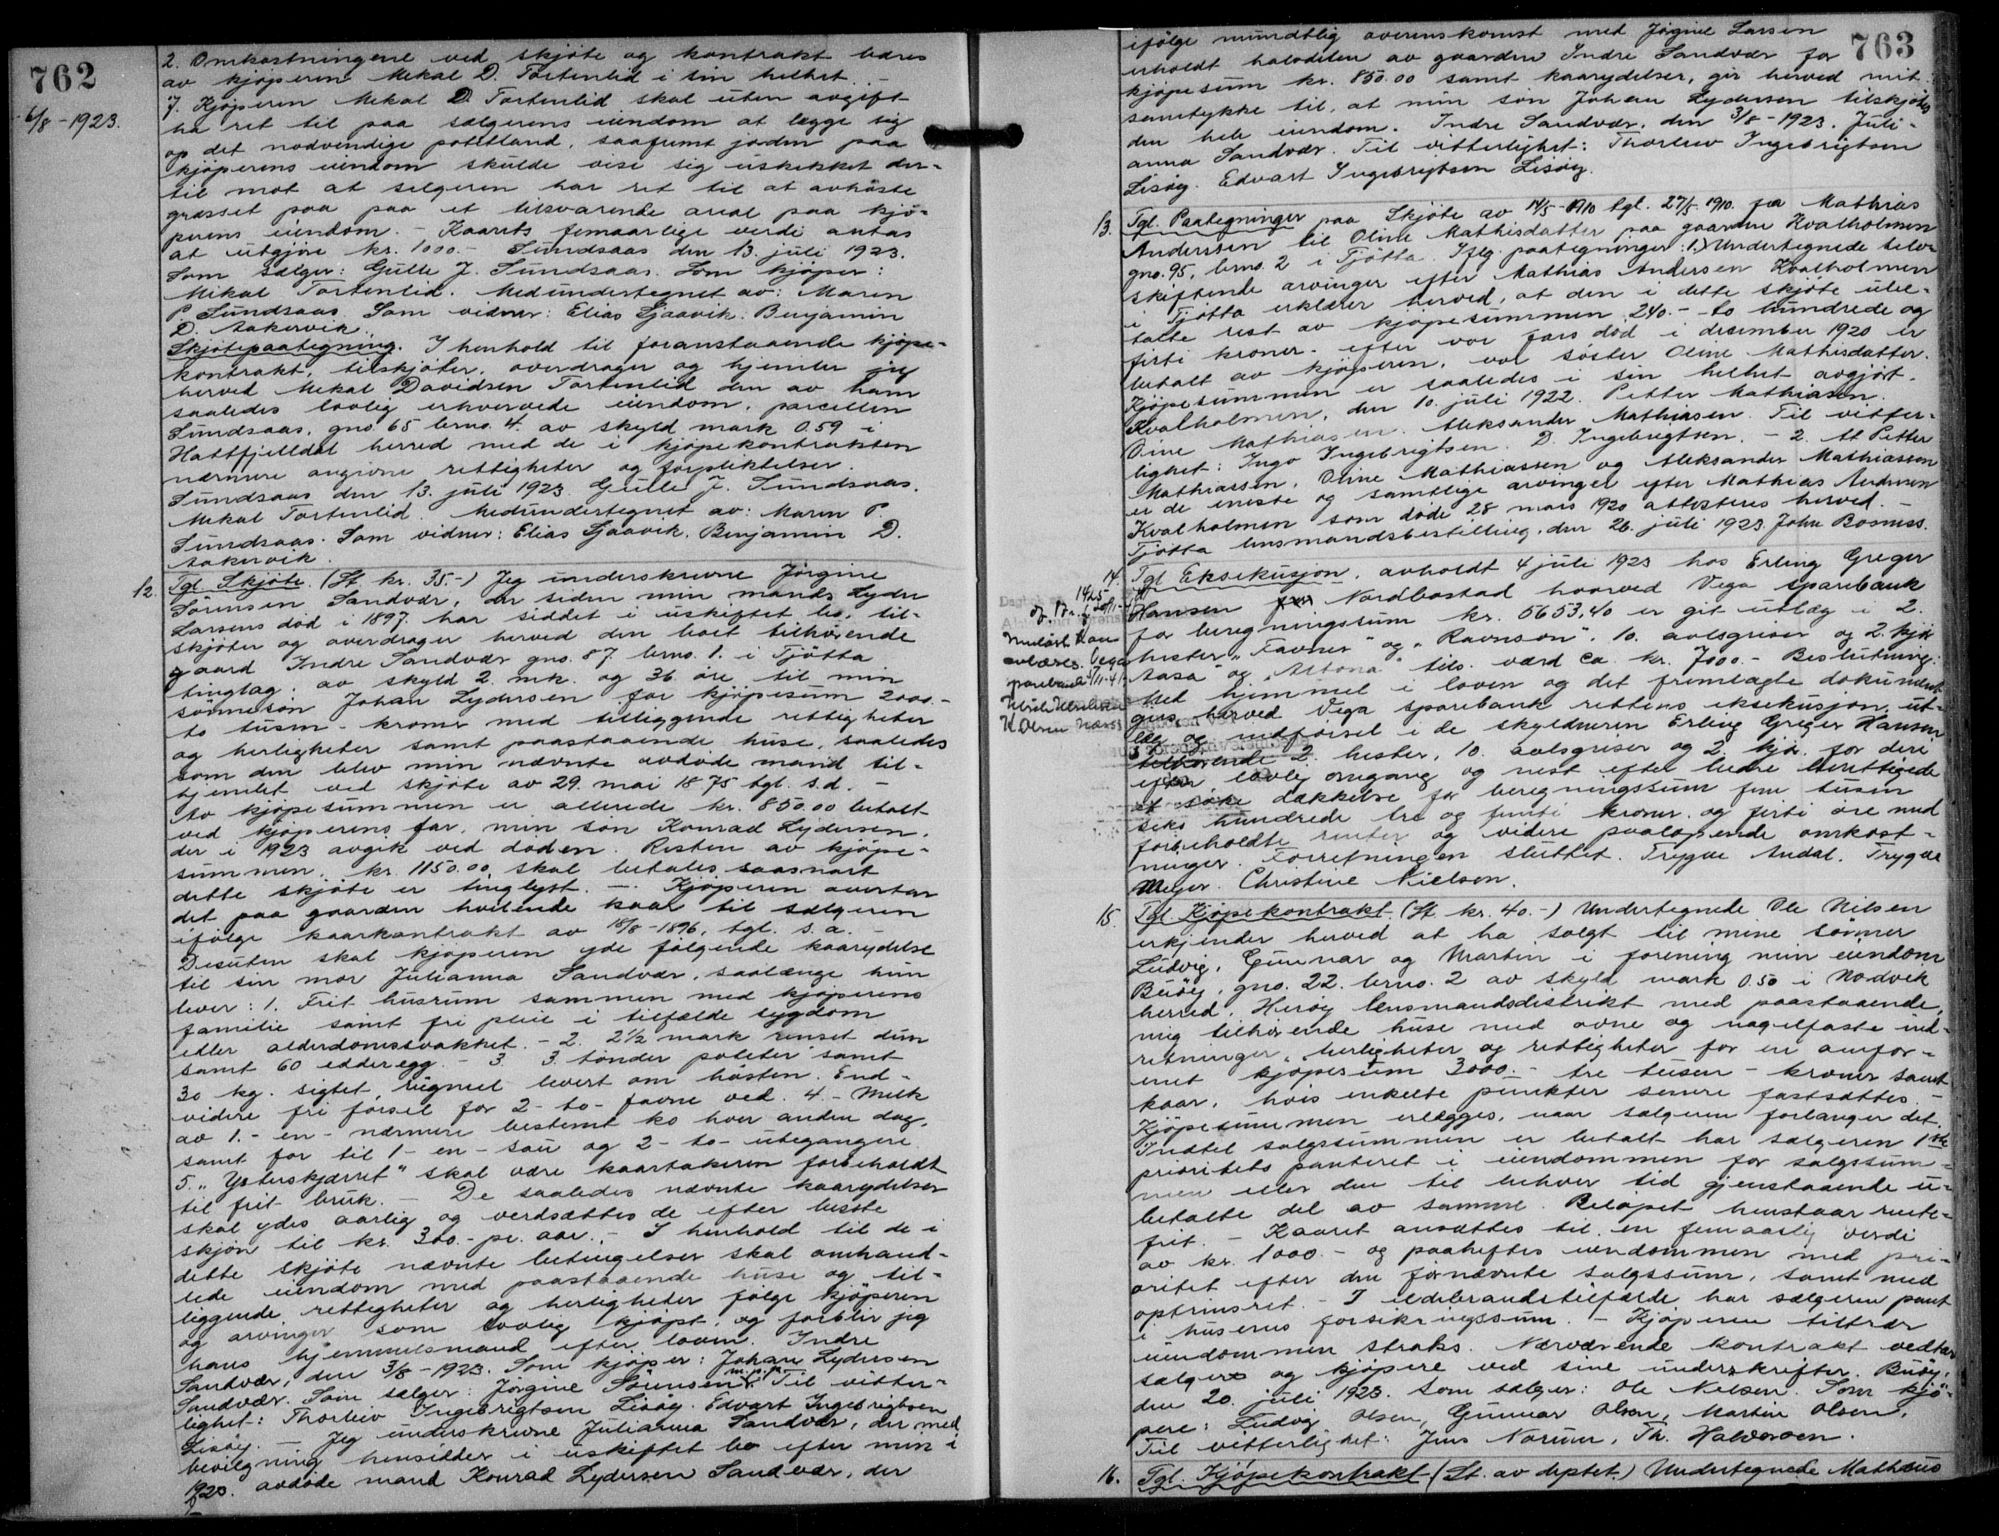 762
6/8-1923.
2. Omkostningene ved skjöte og kontrakt bæres
av kjöperen Mekal D. Tortenlid i sin helhet. -
7. Kjöperen Mekal D. Tortenlid skal uten avgift
ha ret til paa sælgerens eiendom at lægge sig
op det nödvendige potetland, saafremt jorden paa
kjöperens eiendom skulde vise sig uskikket der-
til mot at selgeren har ret til at avhöste
græsset paa paa et tilsvarende areal paa kjö-
perens eiendom. - Kaarets femaarlige verdi antas
at utgjöre kr. 1000.- Sundsaas den 13. juli 1923.
Som sælger: Gulle J. Sundsaas. Som kjöper:
Mikal Tortenlid. Medundertegnet av: Maren
P. Sundsaas. Som vidner: Elias Sjaavik. Benjamin
D. Aakervik.
Skjötepaategning. I henhold til foranstaaende kjöpe-
kontrakt, tilskjöter, overdrager og hjemler jeg
herved Mekal Davidsen Tortenlid den av ham
saaledes lovlig erhvervede eiendom, parcellen
Sundsaas, gno 65 brno. 4. av skyld mark 0.59 i
Hattfjelldal herred med de i kjöpekontrakten
nærmere angivne rettigheter og forpliktelser.
Sundsaas den 13. juli 1923. Gulle J. Sundsaas.
Mekal Tortenlid. Medundertegnet av: Maren P.
Sundsaas. Som vidner: Elias Sjaavik, Benjamin D.
Aakervik.
12. Tgl. Skjöte. (St. kr. 35.-) Jeg underskrevne Jörgine
Sörensen Sandvær, der siden min mands Lyder
Larsens död i 1897. har siddet i uskiftet bo, til-
skjöter og overdrager herved den boet tilhörende
gaard Indre Sandvær gno. 87. brno. 1. i Tjötta
tinglag, av skyld 2. mk. og 36 öre til min
sönnesön Johan Lydersen for kjöpesum 2000.-
to tusen - kroner med tilliggende rettigheter
og herligheter samt paastaaende huse, saaledes
som den blev min nævnte avdöde mand til-
hjemlet ved skjöte av 29. mai 1875 tgl. s.d. -
Av kjöpesummen er allerede kr. 850.00 betalt
ved kjöperens far, min sön Konrad Lydersen,
der i 1923 avgik ved döden. Resten av kjöpe-
summen, kr. 1150.00 skal betales saasnart
dette skjöte er tinglyst. - Kjöperen overtar
det paa gaarden hvilende kaar til sælgeren
ifölge kaarkontrakt av 18/8-1896, tgl. s.a. -
Desuten skal kjöperen yde fölgende kaarydelse
til sin mor Julianna Sandvær, saalænge hun
lever: 1. Frit husrum sammen med kjöperens
familie samt fri pleie i tilfælde sygdom
eller alderdomssvakhet. - 2. 2 1/2 mark renset dun
samt 60 edderegg. - 3. 3 tönder poteter samt
30 kg. sigtet rugmel levert om hösten. End-
videre fri försel for 2- to- favne ved. 4.- Melk
av 1.- en- nærmere bestemt ko hver anden dag,
samt for til 1- en- sau og 2- to- utegangere
5. „Ytterskjærret" skal være kaartakeren forbeholdt
til frit bruk. - De saaledes nævnte kaarydelser
skal ydes aarlig og verdsættes de efter bedste
skjön til kr. 300.- pr. aar. - I henhold til de i
dette skjöte nævnte betingelser skal omhand-
lede eiendom med paastaaende huse og til-
liggende rettigheter og herligheter fölge kjöperen
og arvinger som lovlig kjöpt, og forblir jeg
hans hjemmelsmand efter loven. Indre
Sandvær, den 3/8-1923. Som kjöper: Johan Lydersen
Sandvær. Som sælger: Jörgine Sörensen m.p.p. Til vitter-
lighet: Thorleiv Ingebrigtsen Lisöy. Edvart Ingebrigtsen
Lisöy. - Jeg underskrevne Julianna Sandvær, der med
bevilgning hensidder i uskiftet bo efter min i
1920. avdöde mand Konrad Lydersen Sandvær, der
763
ifölge mundtlig overenskomst med Jörgine Larsen
erholdt halvdelen av gaarden Indre Sandvær for
kjöpesum kr. 850.00 samt kaarydelser, gir herved mit
samtykke til, at min sön Johan Lydersen tilskjötes
den hele eiendom. Indre Sandvær, den 3/8-1923. Juli-
anna Sandvær. Til vitterlighet: Thorleiv Ingebrigtsen
Lisöy. Edvart Ingebrigtsen Lisöy.
13. Tgl. Paategninger paa Skjöte av 14/5-1910 tgl. 27/5 1910. fra Mathias
Anderssen til Oline Mathisdatter paa gaarden Kvalholmen
gno. 95, brno. 2 i Tjötta. Iflg. paategninger: 1.) Undertegnede selv-
skiftende arvinger efter Mathias Andersen Kvalholmen
i Tjötta erklærer herved, at den i dette skjöte ube-
talte rest av kjöpesummen 240.- to hundrede og
firti kroner - efter vor fars död i desember 1920 er
betalt av kjöperen, vor söster Oline Mathisdatter.
Kjöpesummen er saaledes i sin helhet avgjört.
Kvalholmen, den 10. juli 1922. Petter Mathiasen.
Oine Mathiasen. Aleksander Mathiasen. Til vitter-
lighet: Ingo Ingebrigtsen. D. Ingebrigtsen. - 2. At Petter
Mathiassen, Oline Mathiassen og Aleksander Mathiassen
er de eneste og samtlige arvinger efter Mathias Andersen
Kvalholmen som döde 28 mars 1920 attesteres herved. -
Tjötta lensmandsbestilling, den 26. juli 1923. John Bosness.
14. Tgl Eksekusjon, avholdt 4 juli 1923 hos Erling Greger
Hansen Nordbostad hvorved Vega sparebank
for beregningssum kr. 5653,40 er git utlæg i 2.
hester „Favner" og „Ravnson", 10. avlsgriser og 2. kjör
Aasa" og „Altona" tils. værd ca. kr. 7000.- Beslutning:
Med hjemmel i loven og det fremlagte dokument
gives herved Vega sparebank rettens eksekusjon, ut-
læg og indförsel i de skyldneren Erling Greger Hansen
tilhörende 2. hester, 10. avlsgriser og 2. kjör for deri
efter lovlig omgang og nest efter bedre berettigede
at söke dækkelse for beregningssum fem tusen
seks hundrede tre og femti kroner og firti öre med
forbeholdte renter og videre paalöpende omkost-
ninger. Forretningen sluttet. Trygve Andal. Trygve
Meyer. Christine Nielsen.
15. Tgl. Kjöpekontrakt (St. kr. 40.-) Undertegnede Ole Nilsen
erkjender herved at ha solgt til mine sönner
Ludvig, Gunnar og Martin i forening min eiendom
Buöy, gno. 22. brno. 2 av skyld mark 0.50 i Nordvik
herred, Heröy lensmandsdistrikt med paastaaende,
mig tilhörende huse med ovne og nagelfaste ind-
retninger, herligheter og rettigheter for en omfor-
enet kjöpesum 3000.- tre tusen - kroner samt
kaar, hvis enkelte punkter senere fastsættes. -
Kjöpesummen erlægges, naar sælgeren forlanger det.
Indtil salgssummen er betalt har sælgeren 1ste
prioritets panteret i eiendommen for salgssum-
men eller den til enhver tid gjenstaaende u-
betalte del av samme. Belöpet henstaar rente-
frit. - Kaaret ansættes til en femaarlig verdi
av kr. 1000.- og paaheftes eiendommen med pri-
oritet efter den fornævnte salgssum, samt med
optrinsret. - I ildebrandstilfælde har sælgeren pant
i husenes forsikringssum. - Kjöperen tiltrær
eiendommen straks. Nærværende kontrakt vedtar
sælger og kjöpere ved sine underskrifter. Buöy,
den 20. juli 1923. Som sælger: Ole Nilsen. Som kjö-
pere: Ludvig Olsen, Gunnar Olsen, Martin Olsen.
Til vitterlighet: Jens Norum, Th. Halvorsen.
16. Tgl. Kjöpekontrakt (St. av deptet.) Undertegnede Mathæus